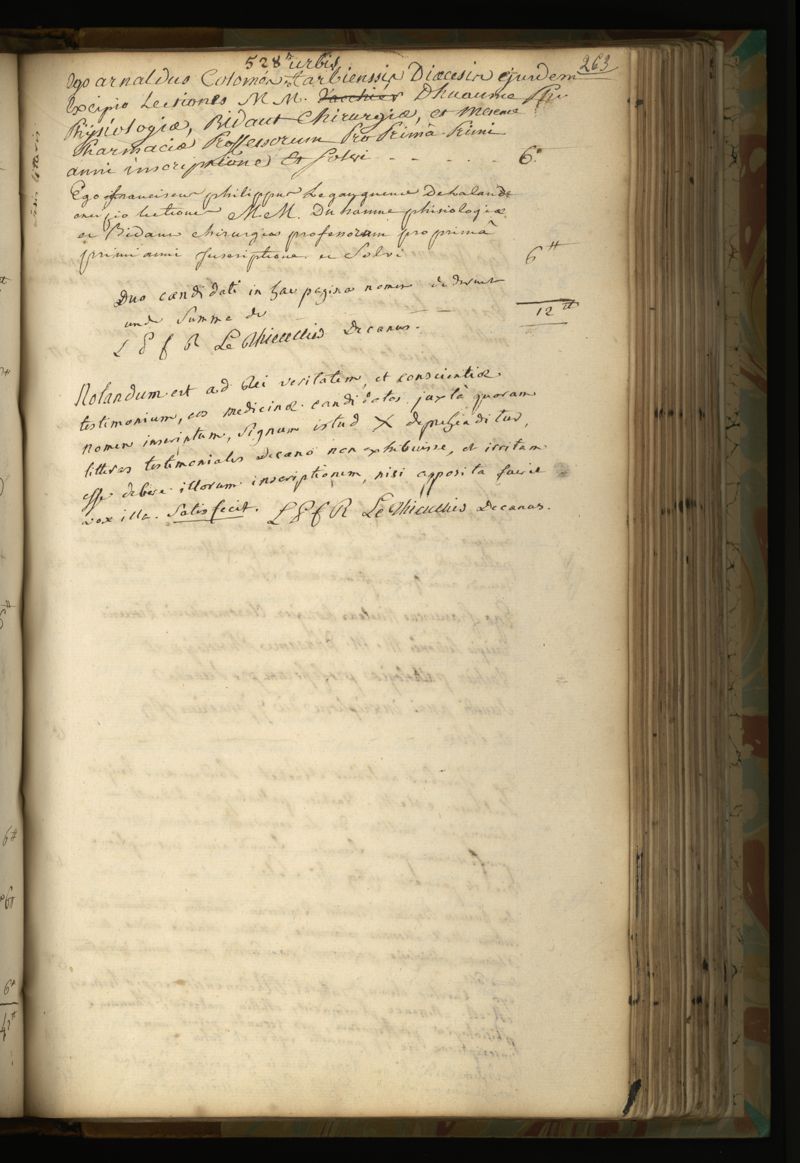 528 urbis 263
Ego arnaldus Colomés tarbiensis Diœcesis ejusdem
Excipio Lectiones M M. Vacchier Dhuaume
Physiologiæ, Bidaut Chirurgiæ, et Meseme
Pharmaciæ Professorum Pro Prima Primi
anni inscriptione Et Solvi - - - - - - 6
Ego franciscus philippus Legangneux Delalande
excipio lectiones M.M. Duhaume phisiologiæ
et Bidaut chirurgiæ professorum pro primâ
primi anni inscriptione et Solvi 6 ᵗᵗ
Duo candidati in hac pagina nomen dederunt
unde Summa de — — 12 ᵗᵗ
L E f R Le Thieullier Decanus.
Notandum est ad Rei veritatem, et conscientiæ
testimonium, eos medicinæ candidatos juxtà quorum
nomen inscriptum, signum istud X deprehenditur,
litteras testimoniales Decano non exhibuisse, et irritam
esse debere illorum inscriptionem, nisi apposita fuerit
vox illa. Satisfecit. L E f R Le Thieullier Decanus.